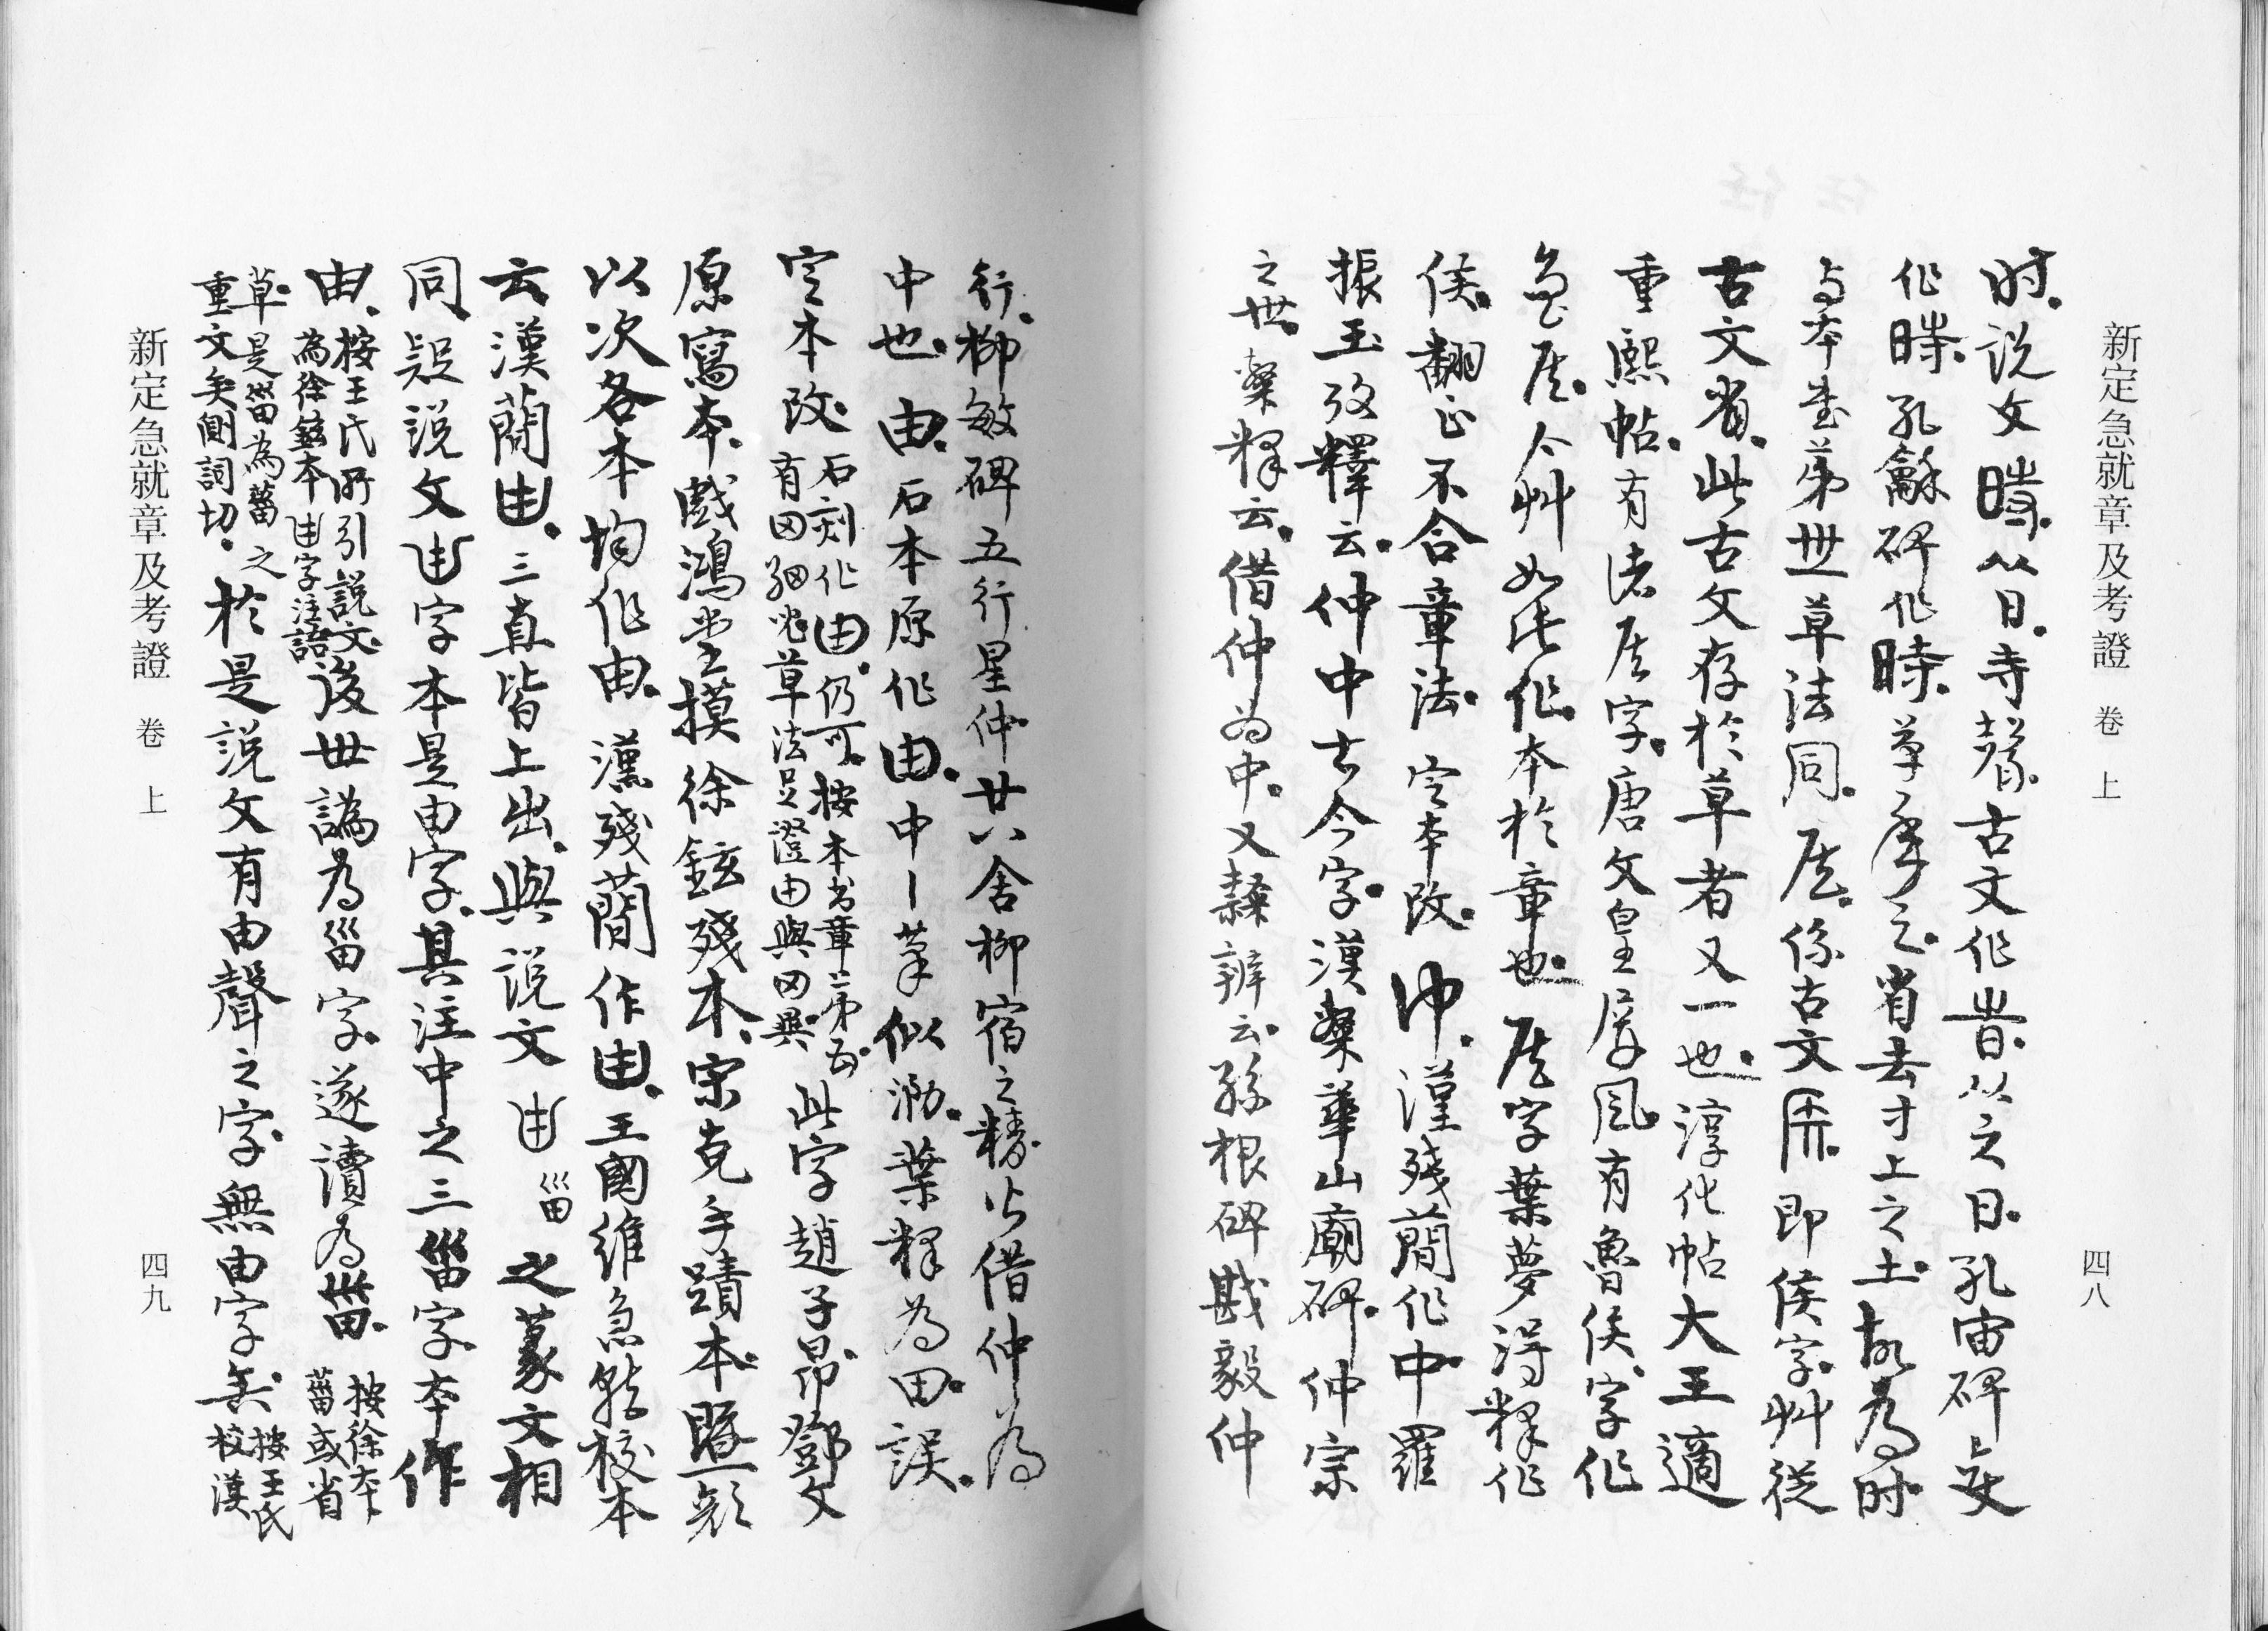 新定急就章及考證 卷上 四八
时。説文時。从日。寺聲。古文作旹。从之日。孔宙碑㚒
作時。孔龢碑作時。草
本書第世草法同。
古文省。此古文存於草者又一也。淳化帖大王適
重熙帖。有諸矦字。唐文皇屏風。有魯侯。字作
今艸如此作。本於章也。矦字葉夢得釋作
侯。翻正不合章法。定本改。仲。漢殘簡作中。羅
振玉攷釋云。仲中古今字。漢華山廟碑。仲宗
之世。釋云。借仲為中。又隸辨云。孫根碑戡毅仲
行。柳敏碑五行星仲廿八舍柳宿之精。皆借仲為
中也。由。石本原作由。中丨筆似泐。葉釋為田。誤。
定本改。石刻作由。仍可。按本書章第五
有田細兆草法足證由與田異
此字趙子昂。鄧文
原寫本。戲鴻堂摸徐鉉殘本。宋克手蹟本。暨
以次各本均作由。漢殘簡作由。王國維急就校本
云漢簡由。三直皆上出。與説文甶甾之篆文相
同。疑説文甶字本是由字。其注中之三甾字本作
由。按王氏所引説文。
為徐鉉本甶字注語
後世譌為甾字。遂讀為菑。按徐本
菑或省
草。是甾為菑之
重文矣側詞切。
於是説文有由聲之字。無由字矣。按王氏
校漢
新定急就章及考證 卷上 四九